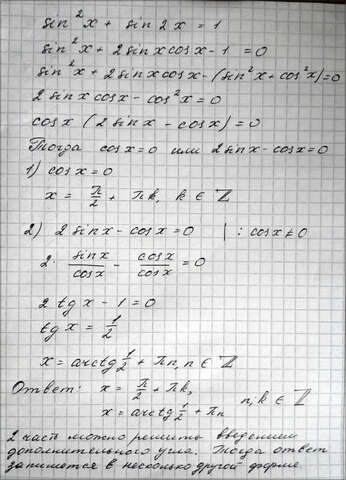 sin²x + sin 2x = 1
sin²x + 2sinxcosx - 1 = 0
sin²x + 2sinxcosx - (sin²x + cos²x) = 0
2sinxcosx - cos²x = 0
cosx (2sinx - cosx) = 0
Тогда cosx = 0 или 2sinx - cosx = 0
1) cosx = 0
x = π/2 + πk, k ∈ ℤ
2) 2sinx - cosx = 0 | : cosx ≠ 0
2· sinx/cosx - cosx/cosx = 0
2tgx - 1 = 0
tgx = 1/2
x = arctg 1/2 + πn, n ∈ ℤ
Ответ: x = π/2 + πk,
x = arctg 1/2 + πn
n, k ∈ ℤ
2 часть можно решить введением
дополнительного угла. Тогда ответ
запишется в несколько другой форме.